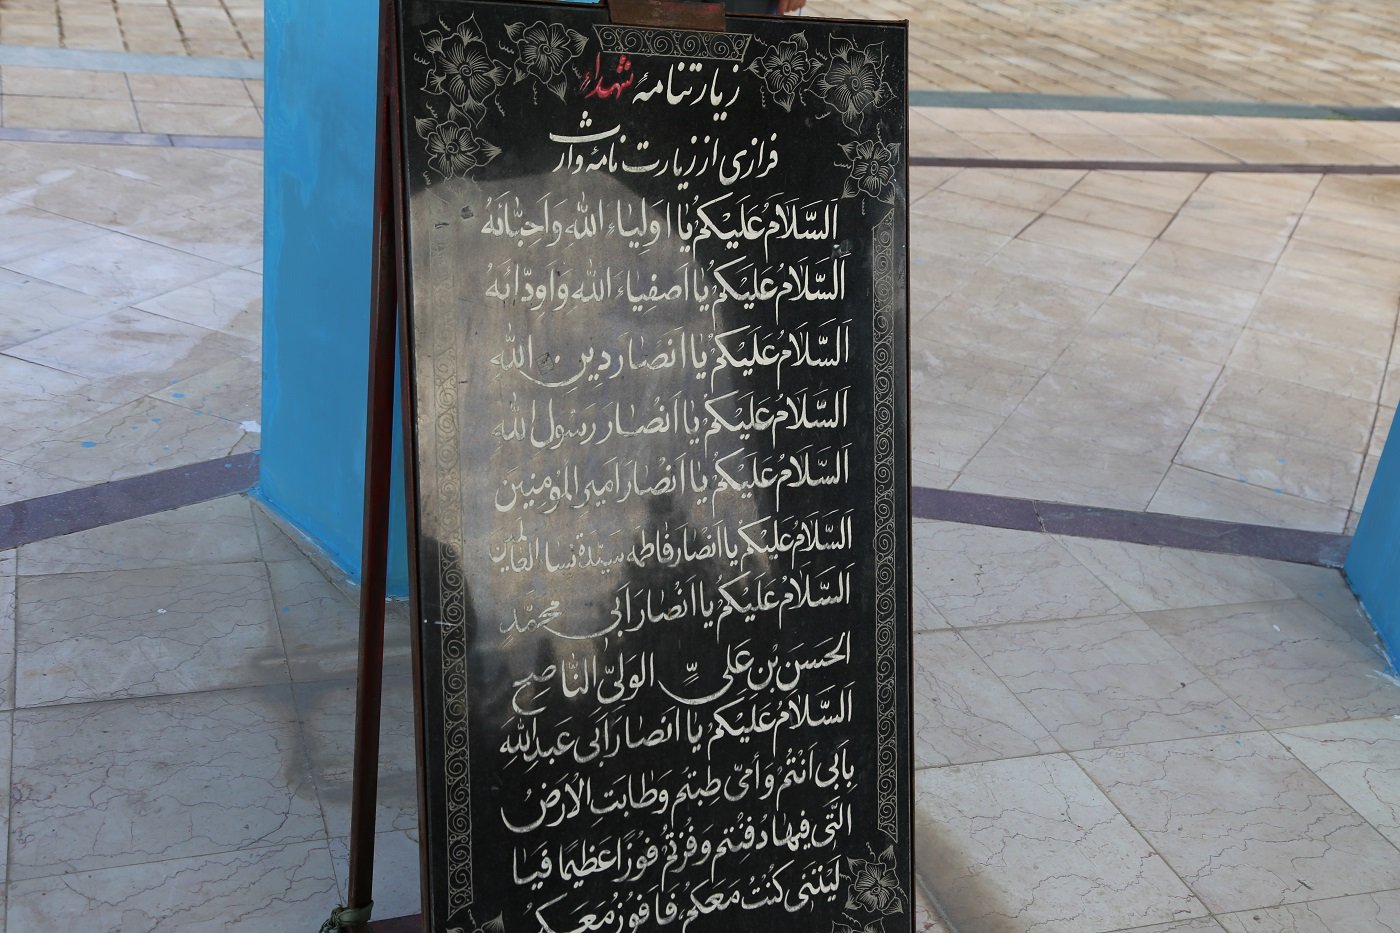 زیارتنامهٔ شهداء
فرازی از زیارت نامهٔ وارث
اَلسَّلَامُ عَلَیْکُمْ یٰا اَولِیٰاءَ اللهِ وَاَحِبّٰائَهُ
اَلسَّلَامُ عَلَیْکُمْ یٰا اَصفِیٰاءَ اللهِ وَاَوِدّٰائَهُ
اَلسَّلَامُ عَلَیْکُمْ یٰا اَنصٰارَ دِینِ اللهِ
اَلسَّلَامُ عَلَیْکُمْ یٰا اَنْصٰارَ رَسُولِ اللهِ
اَلسَّلَامُ عَلَیْکُمْ یٰا اَنْصٰارَ اَمیرِ المُؤمِنینَ
اَلسَّلَامُ عَلَیْکُمْ یٰا اَنْصٰارَ فٰاطِمَه سَیِّدَةِ نِسٰا العٰالَمینَ
اَلسَّلَامُ عَلَیْکُمْ یٰا اَنْصٰارَ اَبی مُحَمَّدٍ
الحَسَنِ بْنِ عَلیٍّ الوَلِیِّ النّٰاصِحِ
اَلسَّلَامُ عَلَیْکُمْ یٰا اَنصٰارَ اَبی عَبدِاللهِ
بِاَبی اَنْتُمْ وَاُمّی طِبتُم وَطٰابَتِ الْاَرضُ
الَّتی فیهٰا دُفِنْتُم وَفُزتُمْ فَوْزًا عَظیمًا فَیٰا
لَیْتَنی کُنْتُ مَعَکُمْ فَاَفُوزُ مَعَکُمْ